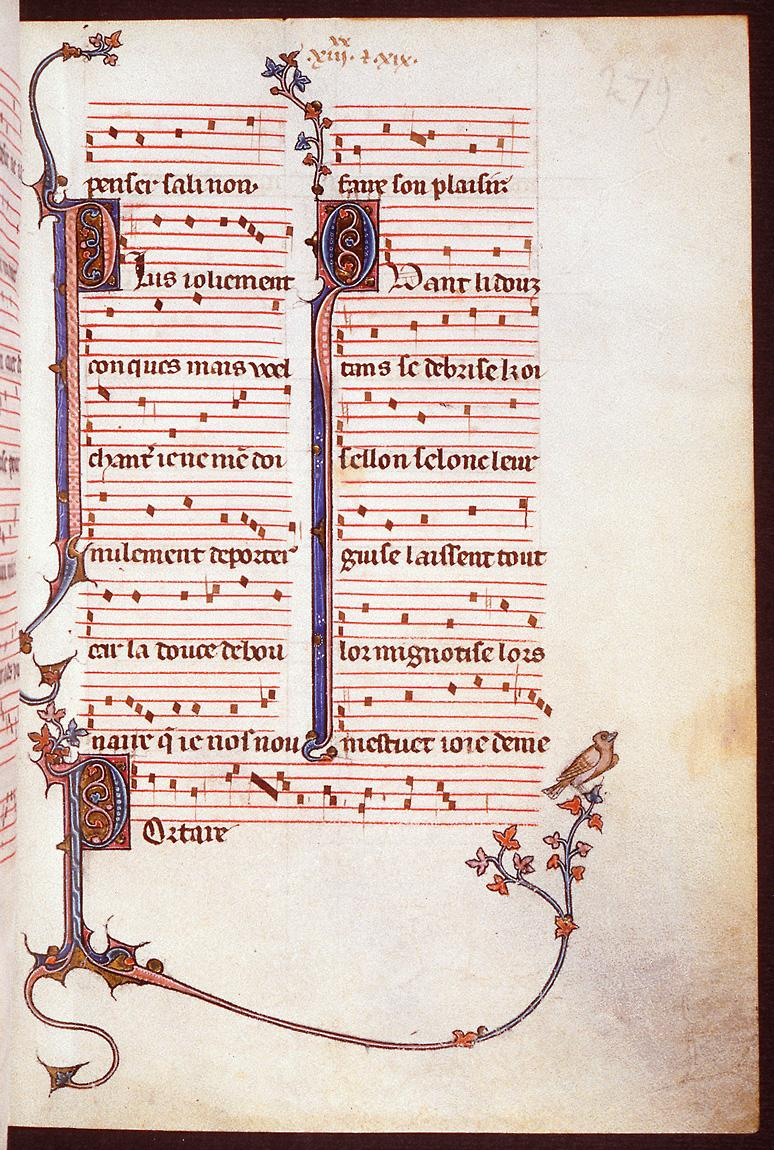 xx
.xiii. ⁊ .xix.
279
penser sali non.
Plus ioliement
conques mais voel
chant' ie ne me doi
nulement deporter
car la douce debou
naire q̃ ie nos nou
faire son plaisir
Quant li douz
tans se debrise li oi
sellon selonc leur
guise laissent tout
lor mignotise lors
mestuet ioie deme
Portare